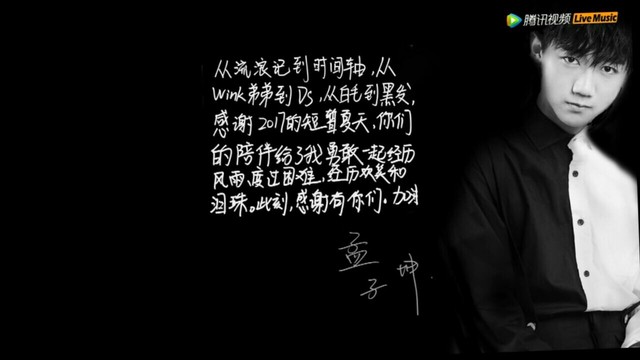 腾讯视频 Live Music
从流浪记到时间轴,从
Wink弟弟到Ds,从白毛到黑发,
感谢2017的短暂夏天,你们
的陪伴给了我勇敢一起经历
风雨、度过困难,经历欢笑和
泪珠。此刻,感谢有你们。加油
孟
子坤